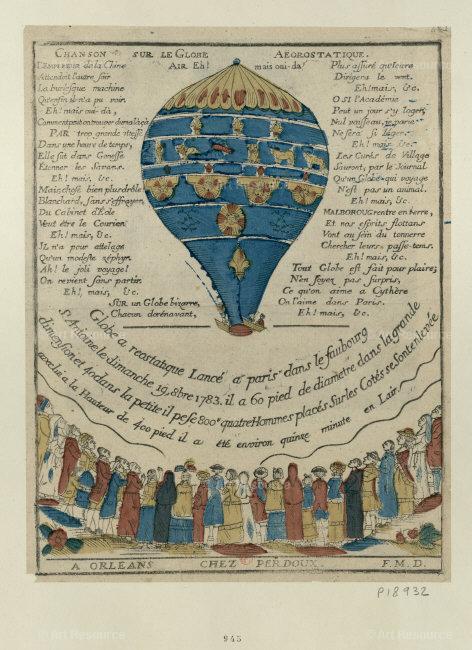 CHANSON SUR LE GLOBE AËOROSTATIQUE.
AIR Eh! mais oui-da!
L'EMPEREUR de la Chine
Attendoit l'autre soir
La burlesque machine
Qu'enfin il n'a pu voir.
Eh! mais oui-da,
Comment peut-on trouver du mal à ça
PAR trop grande vitesse
Dans une heure de temps,
Elle fut dans Gonesse
Étonner les Savans.
Eh! mais, &c.
Mais chose bien plus drôle
Blanchard, sans s'effrayer,
Du Cabinet d'Eole
Veut être le Courier.
Eh! mais, &c.
IL n'a pour attelage
Qu'un modeste zéphyr.
Ah! le joli voyage!
On revient sans partir.
Eh! mais, &c.
SUR un Globe bizarre,
Chacun dorénavant,
Plus assuré qu'Icare
Dirigera le vent.
Eh! mais, &c.
O SI l'Académie
Peut un jour s'y loger,
Nul vaisseau, je parie
Ne sera si léger.
Eh! mais, &c.
Les Curés de Village
Sauront, par le Journal
Qu'un Globe qui voyage
N'est pas un animal.
Eh! mais, &c.
MALBOROUG rentre en terre,
Et nos esprits flottans
Vont au sein du tonnerre
Chercher leurs passe-tems.
Eh! mais, &c.
Tout Globe est fait pour plaire;
N'en soyez pas surpris,
Ce qu'on aime a Cythère
On l'aime dans Paris.
Eh! mais, &c.
Globe a reostatique Lancé a paris dans le faubourg
St Antoine le dimanche 19, 8bre 1783. il a 60 pied de diametre dans la grande
dimension et 40 dans la petite il pese 800 quatre Hommes placés Sur les Cotés se Sont enlevée
avec la a la Hauteur de 400 pied il a été environ quinze minute en Lair.
A ORLEANS CHEZ PERDOUX. F. M. D.
P18932
945
© Art Resource